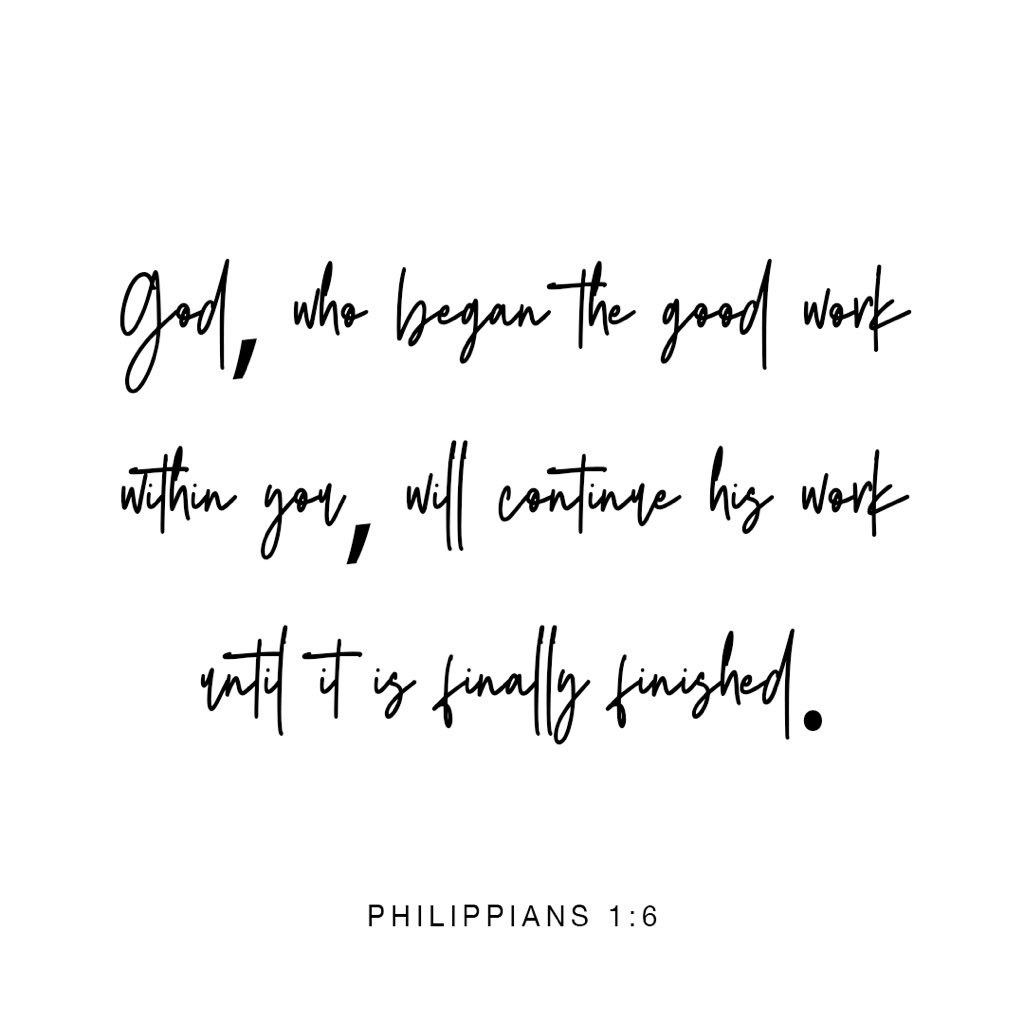 God, who began the good work
within you, will continue his work
until it is finally finished.
PHILIPPIANS 1:6